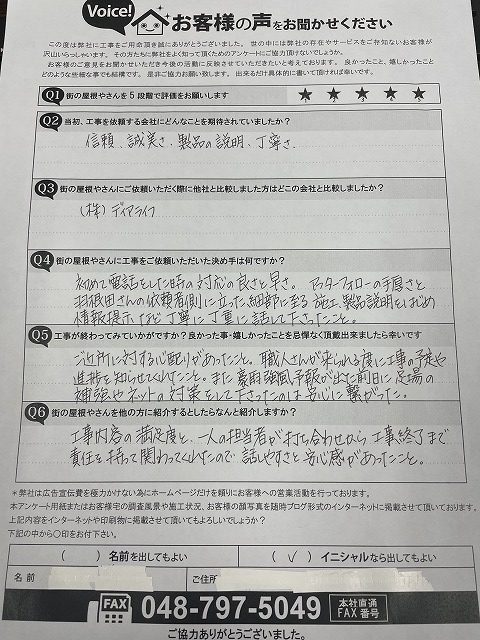 Voice! お客様の声をお聞かせください
この度は弊社に工事をご用命頂き誠にありがとうございました。世の中には弊社の存在やサービスをご存知ないお客様が
沢山いらっしゃいます。その方たちに弊社をよく知って頂くためのアンケートにご協力頂けないでしょうか？
お客様のご意見をお聞かせいただき今後の活動に反映させていただきたいと考えております。良かったこと、嬉しかったこと
どのような些細な事でも結構です。是非ご協力お願い致します。出来るだけ具体的に書いて頂ければ幸いです。
Q1 街の屋根やさんを5段階で評価をお願いします ★ ★ ★ ★ ★
Q2 当初、工事を依頼する会社にどんなことを期待されていましたか？
信頼、誠実さ、製品の説明、丁寧さ
Q3 街の屋根やさんにご依頼いただく際に他社と比較しました方はどこの会社と比較しましたか？
(株) ディアライフ
Q4 街の屋根やさんに工事をご依頼いただいた決め手は何ですか？
初めて電話をした時の対応の良さと早さ。アフターフォローの手厚さと
羽根田さんの依頼者側に立った細部に至る施工、製品説明をはじめ
情報提示など丁寧に丁寧に話して下さったこと。
Q5 工事が終わってみていかがですか？良かった事・嬉しかったことを忌憚なく頂戴出来ましたら幸いです
ご近所に対する心配りがあったこと。職人さんが来られる度に工事の予定や
進捗を知らせてくれたこと。また豪雨強風予報が出た前日に足場の
補強やネットの対策をして下さったのは安心に繋がった。
Q6 街の屋根やさんを他の方に紹介するとしたらなんと紹介しますか？
工事内容の満足度と、一人の担当者が打ち合わせから工事終了まで
責任を持って関わってくれたので話しやすさと安心感があったこと。
＊弊社は広告宣伝費を極力かけない為にホームページだけを頼りにお客様への営業活動を行っております。
本アンケート用紙またはお客様宅の調査風景や施工状況、お客様の顔写真を随時ブログ形式のインターネットに掲載させて頂いております。
上記内容をインターネットや印刷物に掲載させて頂いてもよろしいでしょうか？
下記の中から〇印をお付下さい。
(　) 名前を出してもよい (✓) イニシャルなら出してもよい
名前 ご住所
FAX 048-797-5049 本社直通 FAX番号
ご協力ありがとうございました。